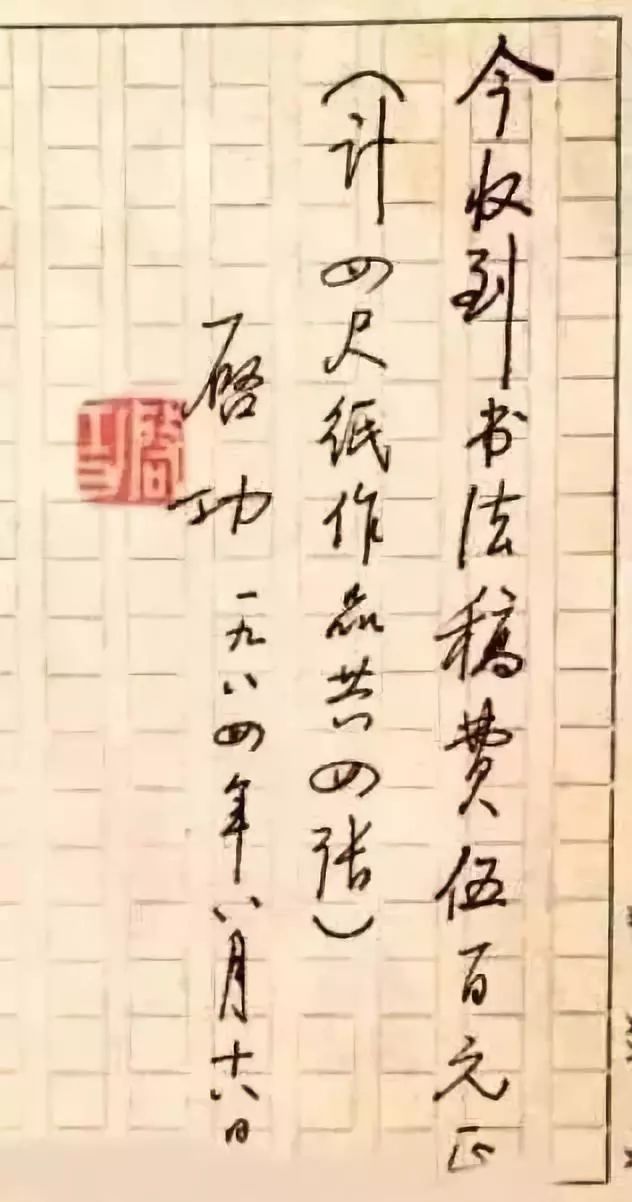 今收到书法稿费伍百元正
(计四尺纸作品共四张)
启功 一九八四年八月十六日
启功